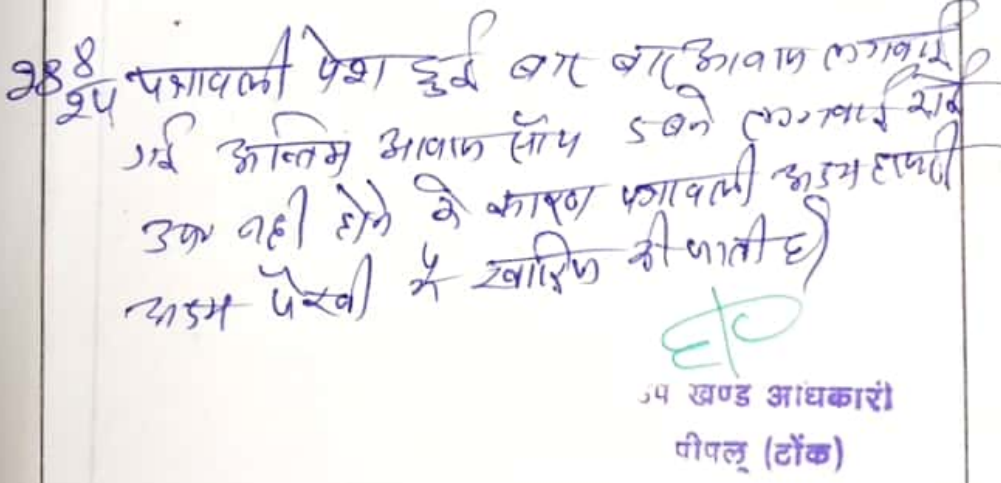 28 8/24 पत्रावली पेश हुई बार बार आवाज लगवाई
गई अन्तिम आवाज सांय 5 बजे लगवाई गई
उप० नही होने के कारण पत्रावली अदम हाजरी
अदम पैरवी में खारिज की जाती है
उप खण्ड अधिकारी
पीपलू (टोंक)